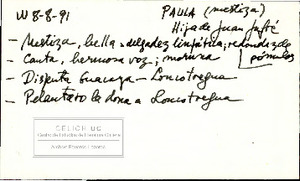 W 8-8-91 PAULA (mestiza)
Hija de Juan Jufré
- Mestiza, bella, delgadez simpática, redondez de pómulos
- Canta, hermosa voz; morena
- Disputa Guacaya - Loncotregua
- Pelantaro la dona a Loncotregua
CELICH UC
Centro de Estudios de Literatura Chilena